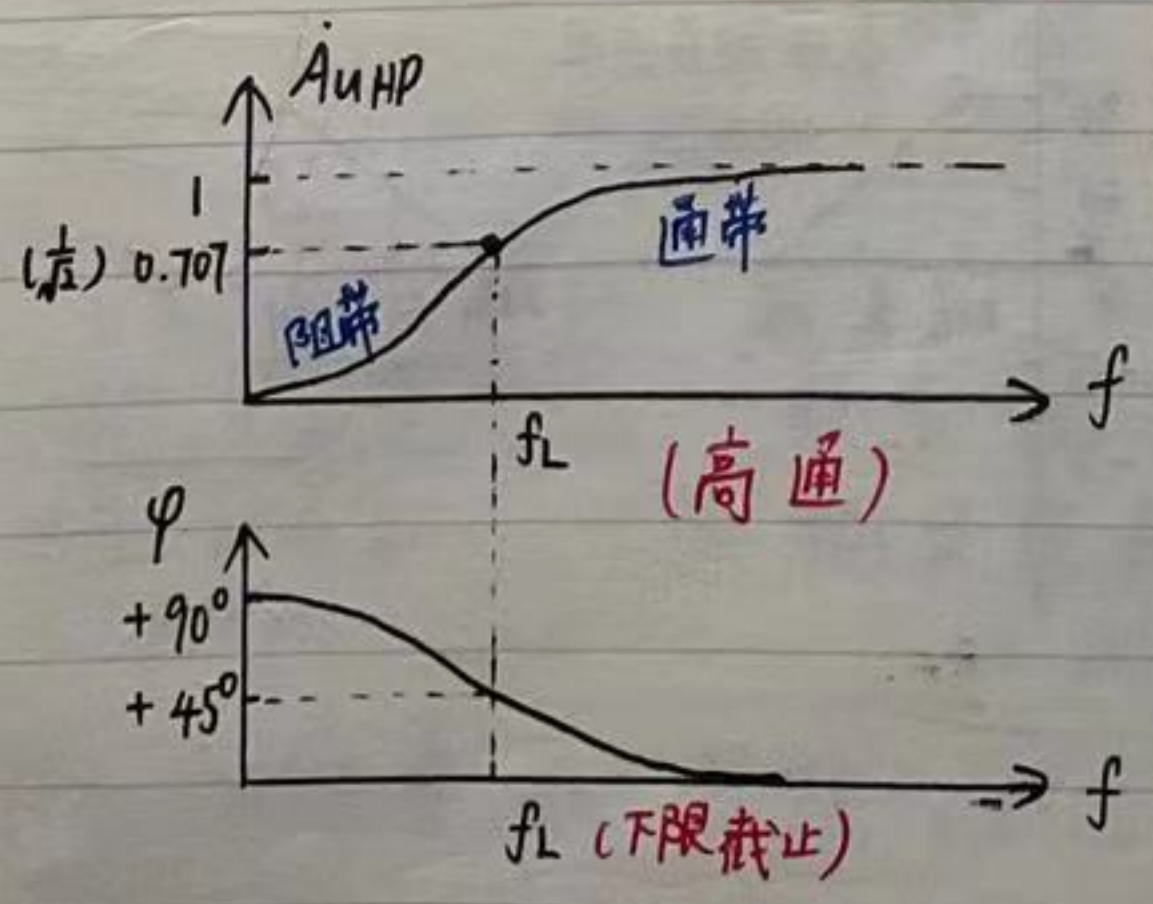 Ȧu HP
1
(1/√2) 0.707
通带
阻带
f
fL
(高通)
φ
+90°
+45°
f
fL (下限截止)